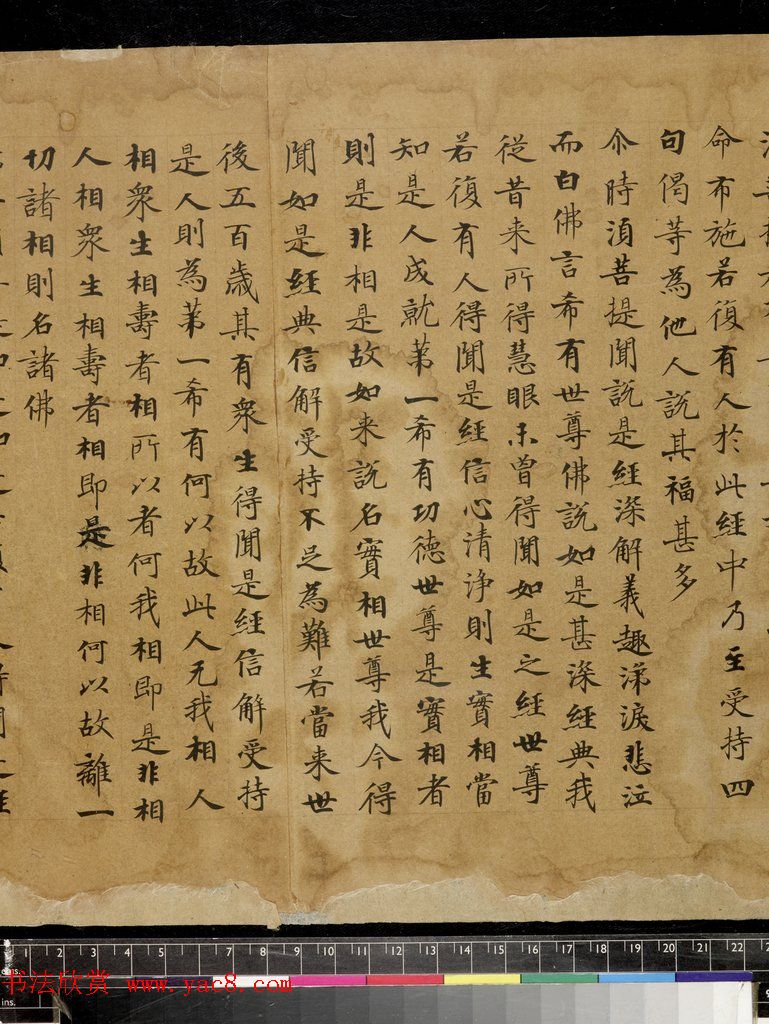 命布施若復有人於此經中乃至受持四
句偈等為他人說其福甚多
尒時湏菩提聞說是經深解義趣涕淚悲泣
而白佛言希有世尊佛說如是甚深經典我
從昔来所得慧眼未曾得聞如是之經世尊
若復有人得聞是經信心清淨則生實相當
知是人成就苐一希有功德世尊是實相者
則是非相是故如来說名實相世尊我今得
聞如是經典信解受持不足為難若當来世
後五百歲其有衆生得聞是經信解受持
是人則為苐一希有何以故此人无我相人
相衆生相壽者相所以者何我相即是非相
人相衆生相壽者相即是非相何以故離一
切諸相則名諸佛
cms. 1 2 3 4 5 7 8 9 10 11 12 13 14 15 16 17 18 19 20 21 22
书法欣赏 www.yac8.com
ins.